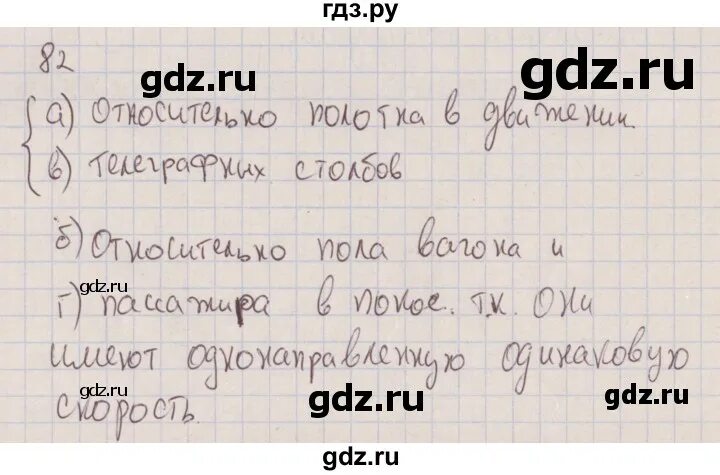 гдз.ру
82
gdz.ru gdz.ru
а) относительно полотна в движении
в) телеграфных столбов
gdz.ru
б) относительно пола вагона и
gdz.ru
г) пассажира в покое. т.к. они
имеют однонаправленную одинаковую
gdz.ru gdz.ru
скорость.
gdz.ru